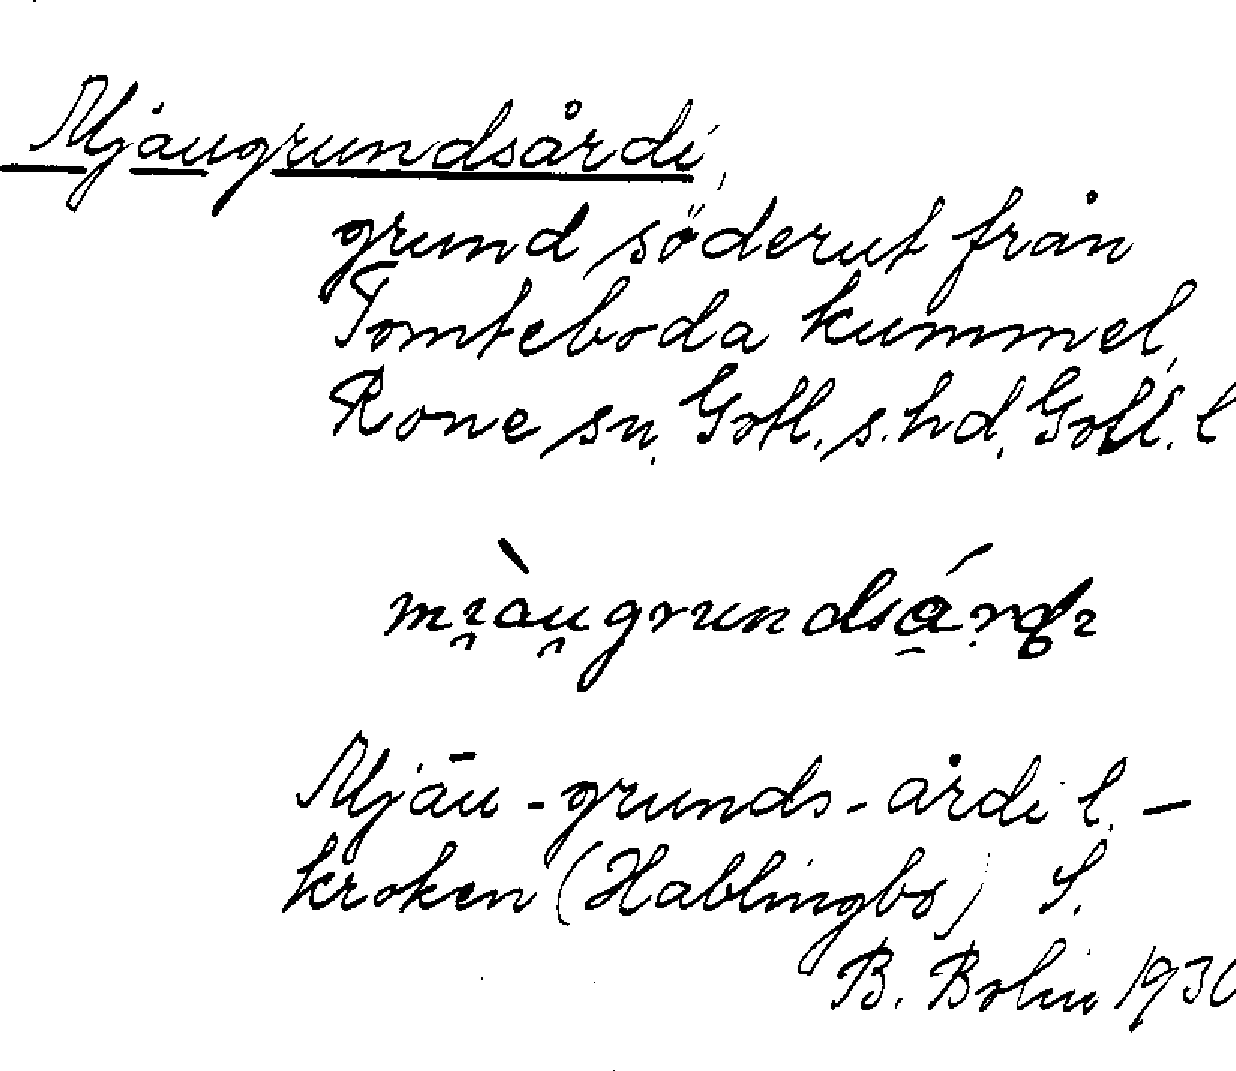 Mjaugrundsårdi,
grund söderut från
Tomteboda kummel,
Rone sn, Gotl. s. hd, Gotl. l
Mjāu - grunds - årdi l. -
kroken (Hablingbo) S.
B. Bolin 193